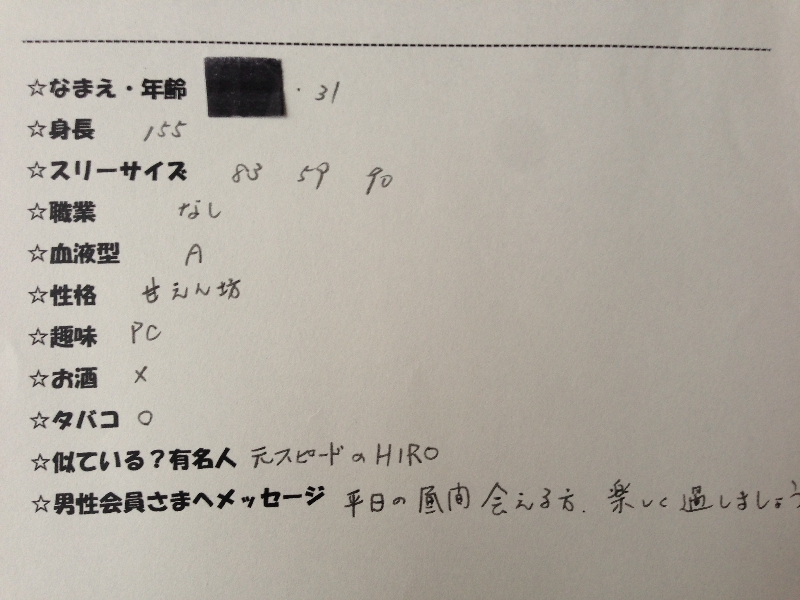 ☆なまえ・年齢 ・31
☆身長 155
☆スリーサイズ 83 59 90
☆職業 なし
☆血液型 A
☆性格 甘えん坊
☆趣味 PC
☆お酒 ×
☆タバコ ○
☆似ている?有名人 元スピードのHIRO
☆男性会員さまへメッセージ 平日の昼間会える方、楽しく過しましょう